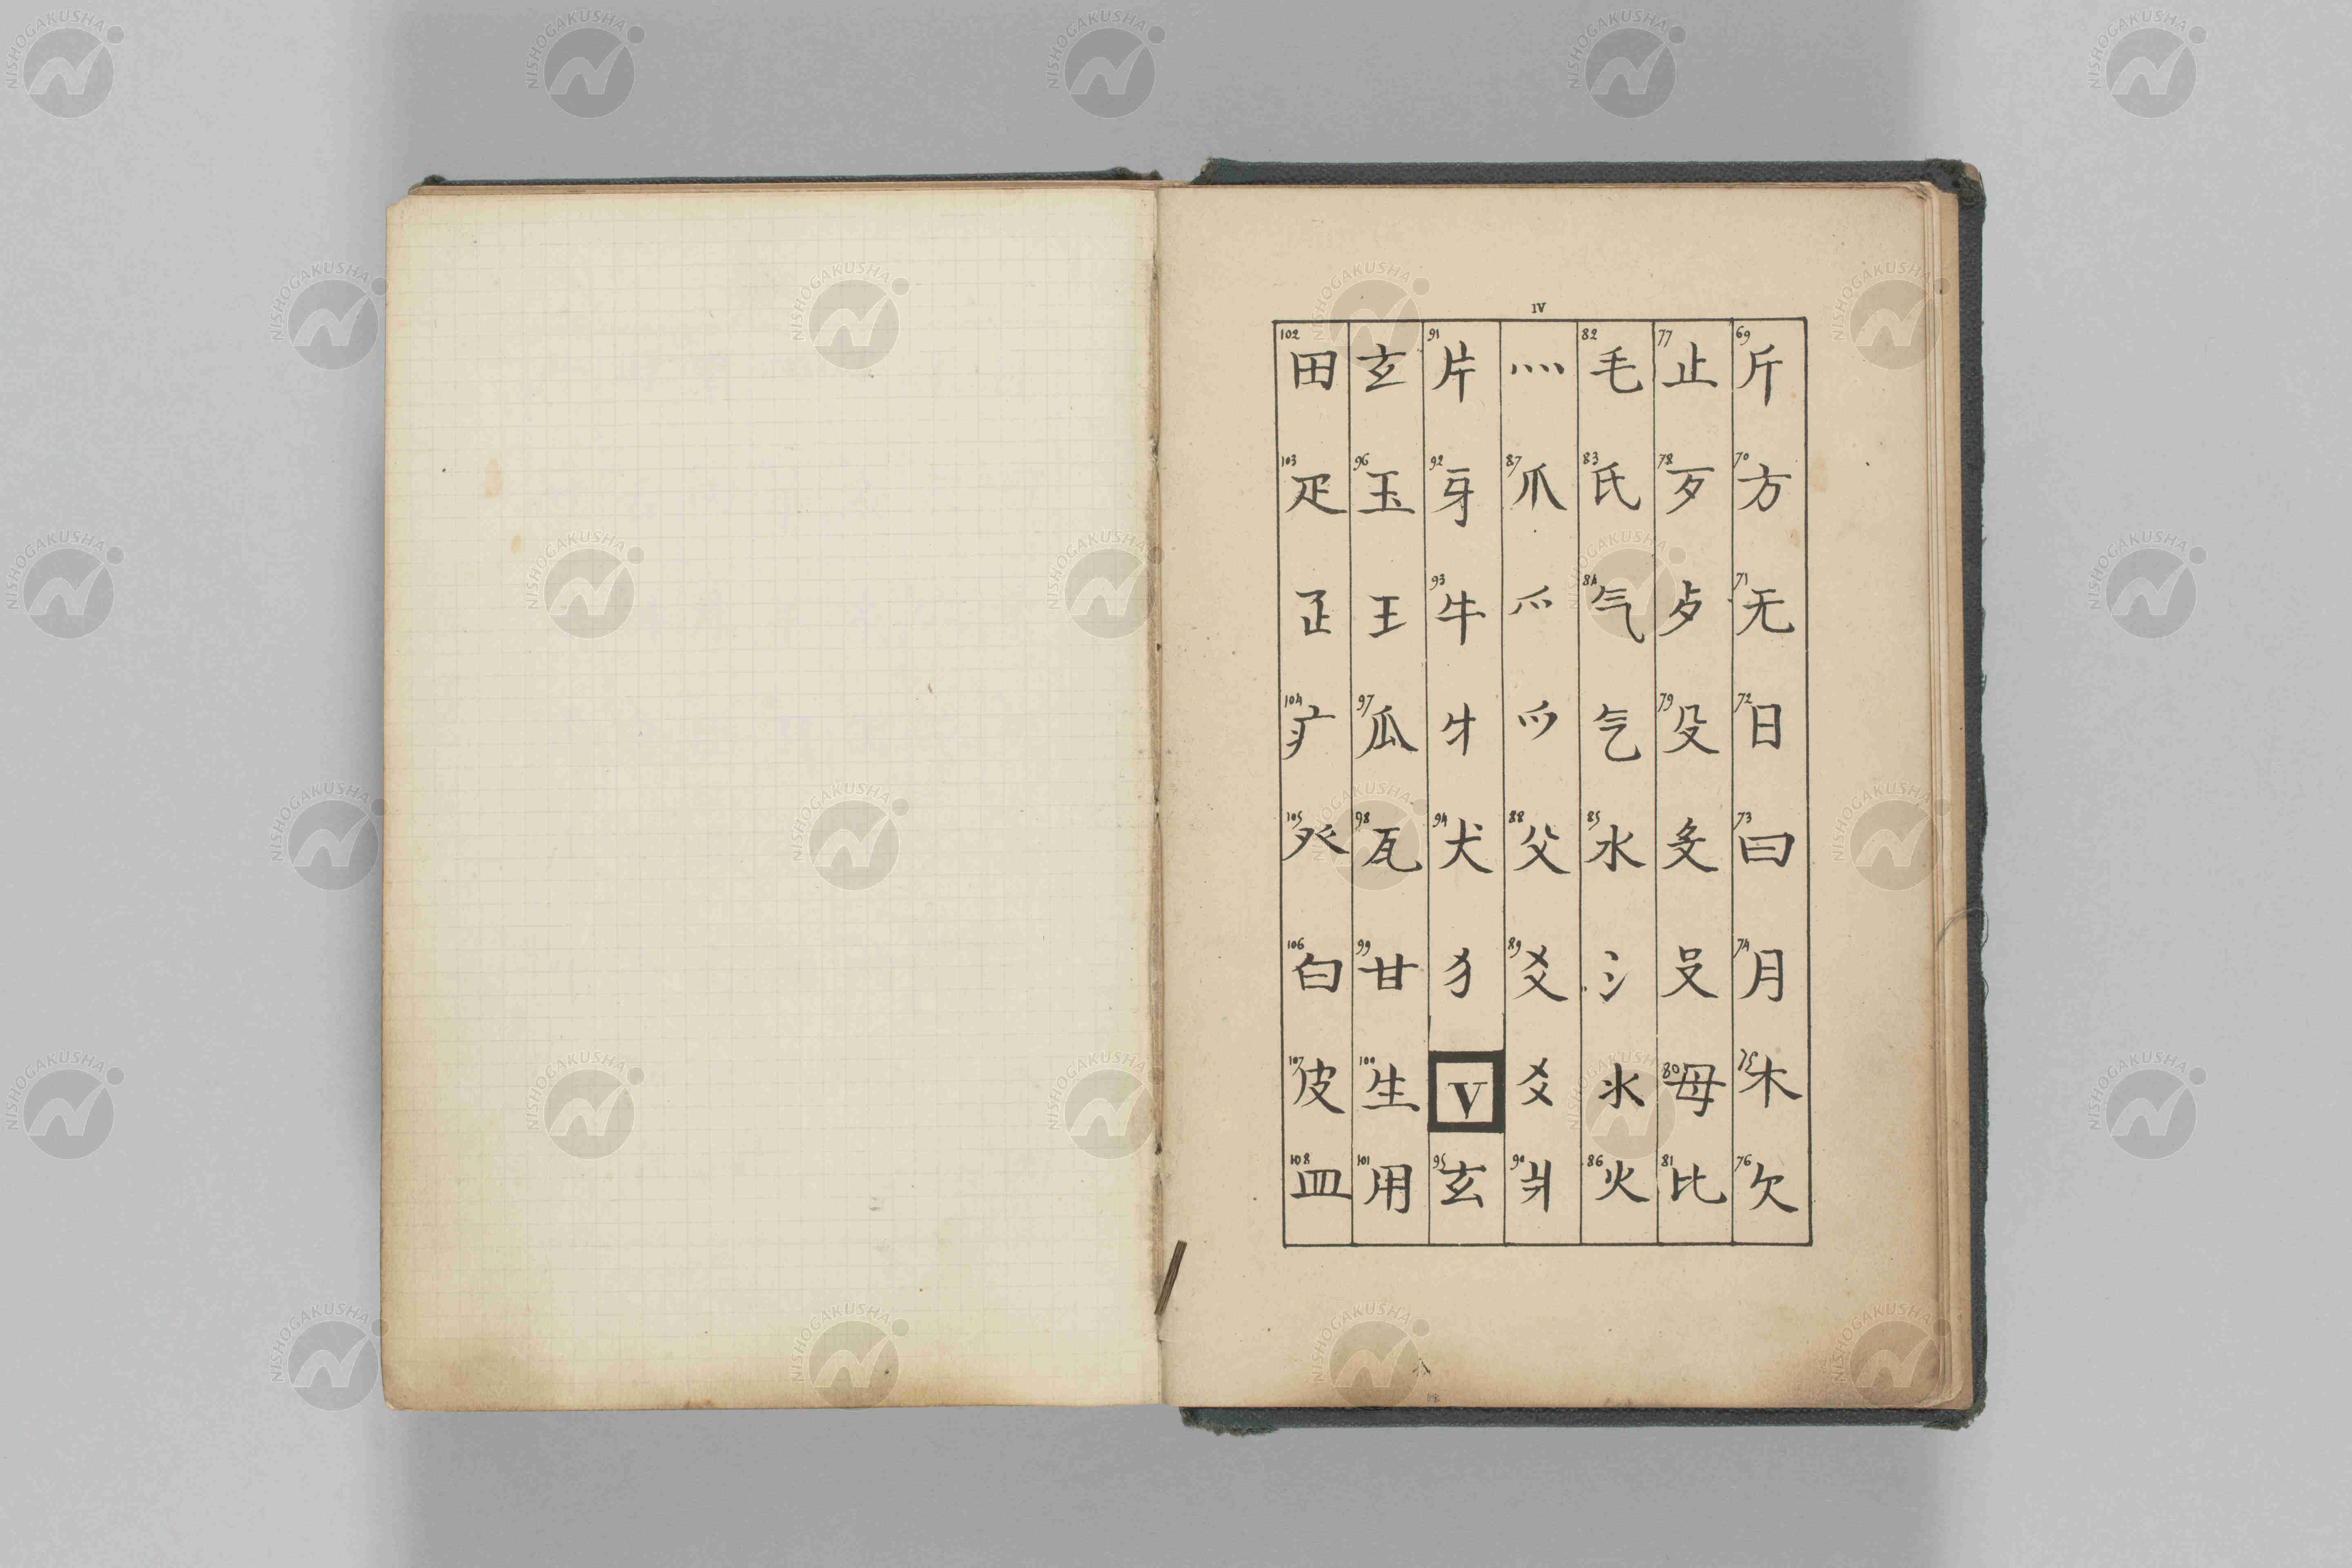 IV
69 斤
70 方
71 无
72 日
73 曰
74 月
75 木
76 欠
77 止
78 歹
歺
79 殳
80 母
81 比
82 毛
83 氏
84 气
乞
85 水
氵
氺
86 火
灬
87 爪
爫
88 父
89 爻
90 爿
91 片
92 牙
93 牛
牜
94 犬
犭
V
95 玄
玄
96 玉
王
97 瓜
98 瓦
99 甘
100 生
101 用
102 田
103 疋
104 疒
105 癶
106 白
107 皮
108 皿
NISHOGAKUSHA